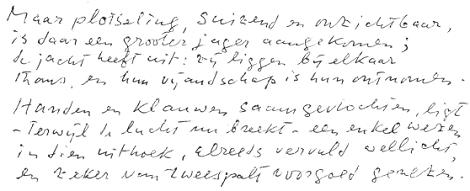 Maar plotseling, suizend en onzichtbaar,
is daar een grooter jager aangekomen;
de jacht heeft uit: zij liggen bij elkaar
thans, en hun vijandschap is hun ontnomen.
Handen en klauwen saamgevlochten, ligt
– terwijl de lucht nu breekt – een enkel wezen
in dien uithoek, alreeds vervuld wellicht,
en zeker van tweespalt voorgoed genezen.